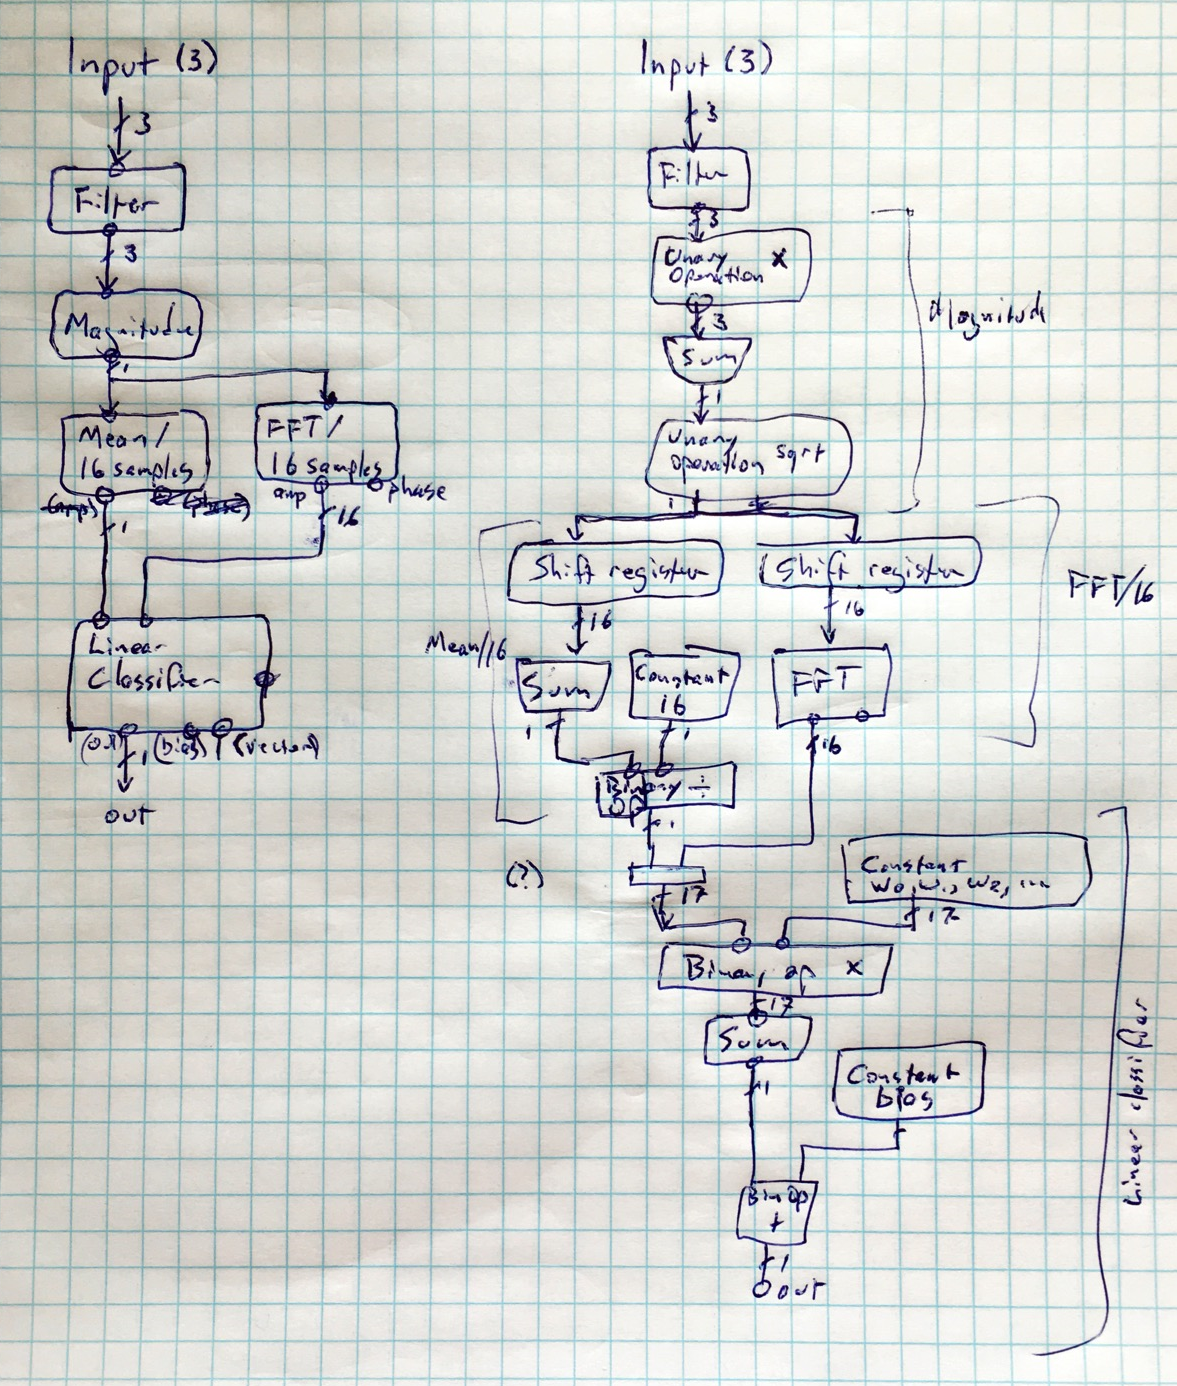 Input (3)
3
Filter
3
Magnitude
1
Mean/
16 samples
(amp)
FFT/
16 samples
amp
phase
1
16
Linear
Classifier
(out)
1
(bias)
(vector)
out
Input (3)
3
Filter
3
Unary
Operation x
3
Sum
1
Unary
operation sqrt
Magnitude
1
Shift register
Shift register
16
16
Mean/16
Sum
Constant
16
FFT
FFT/16
1
1
16
Binary ÷
op
1
(?)
17
Constant
w0, w1, w2, ...
17
Binary op x
17
Sum
1
Constant
bias
Bin Op
+
1
out
Linear classifier